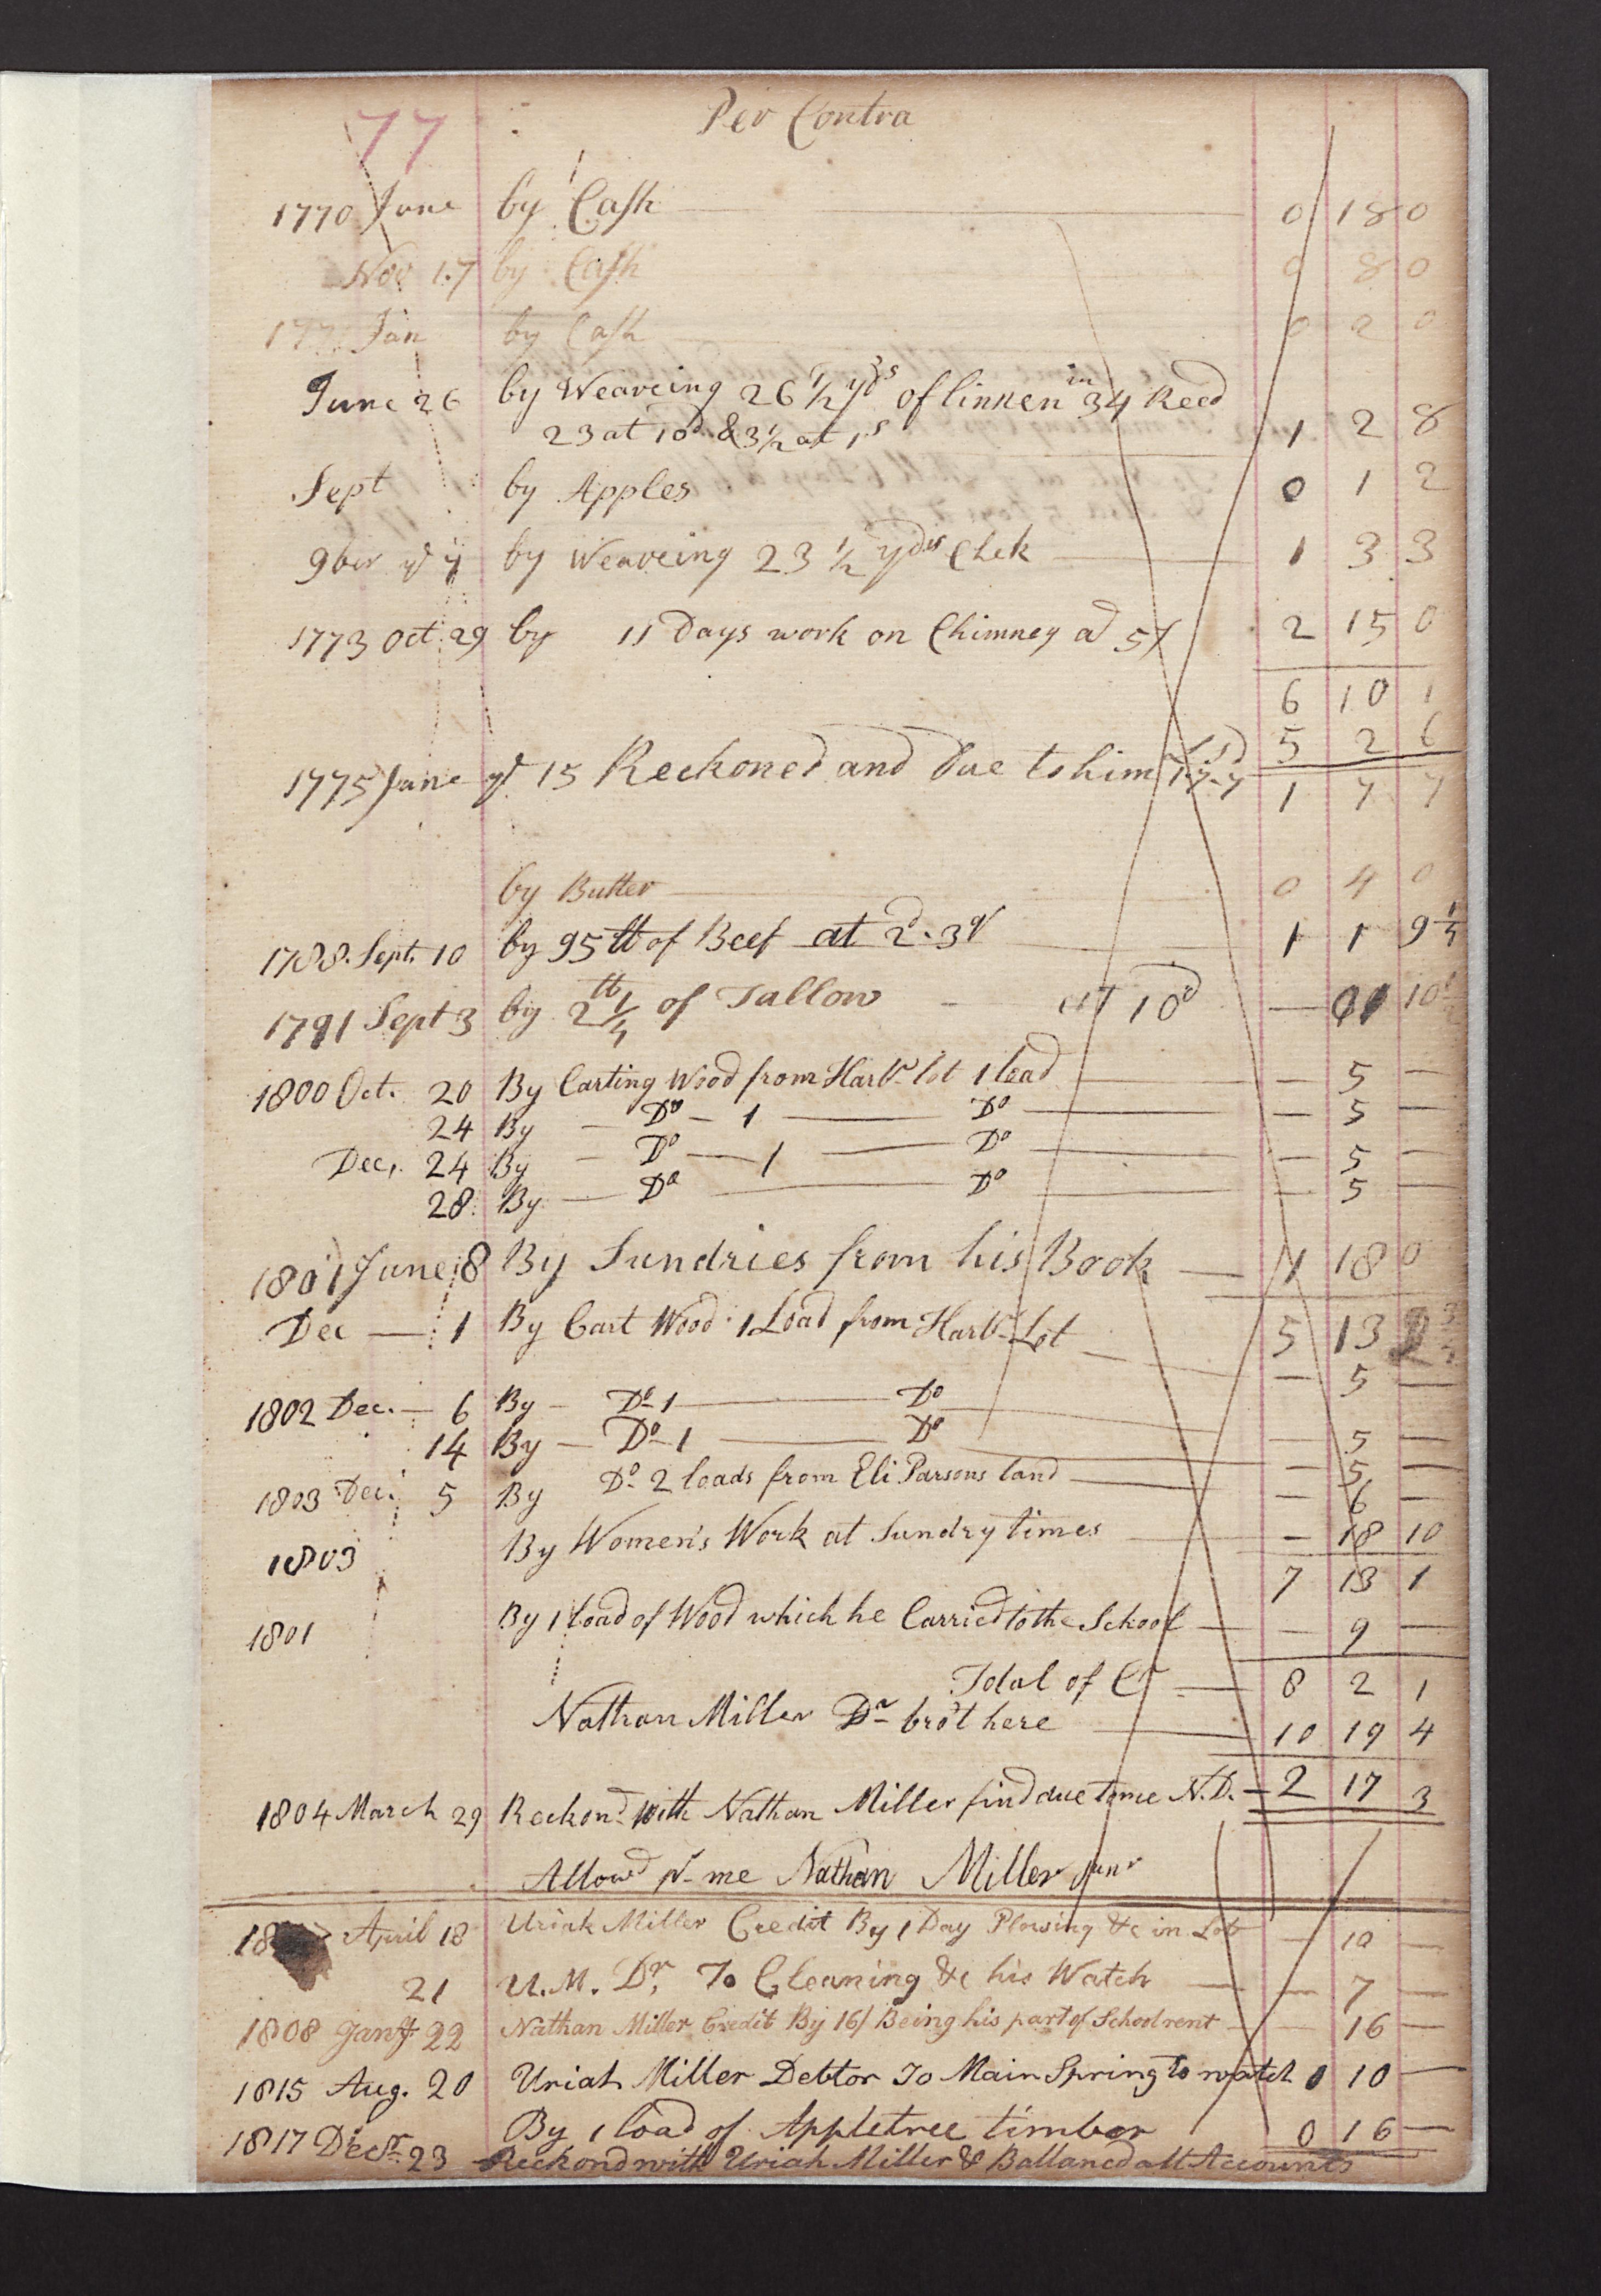 77 Per Contra
1770 June by Cash 0 18 0
Nov 17 by Cash 0 8 0
Jan by Cash 0 2 0
June 26 by Weaveing 26 1/2 yds of linnen in 34 Reed
23 at 10d & 3 1/2 at 1s 1 2 8
Sept by Apples 0 1 2
9ber by Weaveing 23 1/2 yds Chek 1 3 3
1773 Oct. 29 by 11 Days work on Chimney at 5/ 2 15 0
6 10 1
5 2 6
1775 June ye 15 Reckoned and Due to him 1-7-7 1 7 7
by Butter 0 4 0
1788. Sept. 10 by 95 lb of Beef at 2d. 3qr 1 1 9 1/4
1791 Sept 3 by 2 lb 1/4 of Tallow at 10d — 01 10 1/2
1800 Oct. 20 By Carting Wood from Harbr lot 1 load — 5 —
24 By — Do — 1 — Do — — 5 —
Dec. 24 By — Do — 1 — Do — — 5 —
28. By — Do — Do — — 5 —
1801 June 8 By Sundries from his Book — 1 18 0
Dec — 1 By Cart Wood 1 Load from Harbr Lot 5 13
— 5 —
1802 Dec. — 6 By — Do 1 — Do — 5 —
14 By — Do 1 — Do — 5 —
1803 Dec. 5 By Do 2 loads from Eli Parsons land — — 6 —
1803 By Women's Work at Sundry times — 18 10
7 13 1
1801 By 1 load of Wood which he Carried to the School — — 9 —
Total of Cr — 8 2 1
Nathan Miller Dr bro't here 10 19 4
1804 March 29 Reckond with Nathan Miller find due to me N. D. — 2 17 3
Allowd pr me Nathan Miller Junr
April 18 Uriah Miller Credit By 1 Day Plowing &c in Lot — 10 —
21 U. M. Dr, To Cleaning &c his Watch — — 7 —
1808 Jany 22 Nathan Miller Credit By 16/ Being his part of School rent — — 16 —
1815 Aug. 20 Uriah Miller Debtor To Main Spring to watch 0 10 —
By 1 load of Appletree timber 0 16 —
1817 Decr. 23 Reckond with Uriah Miller & Ballancd all Accounts